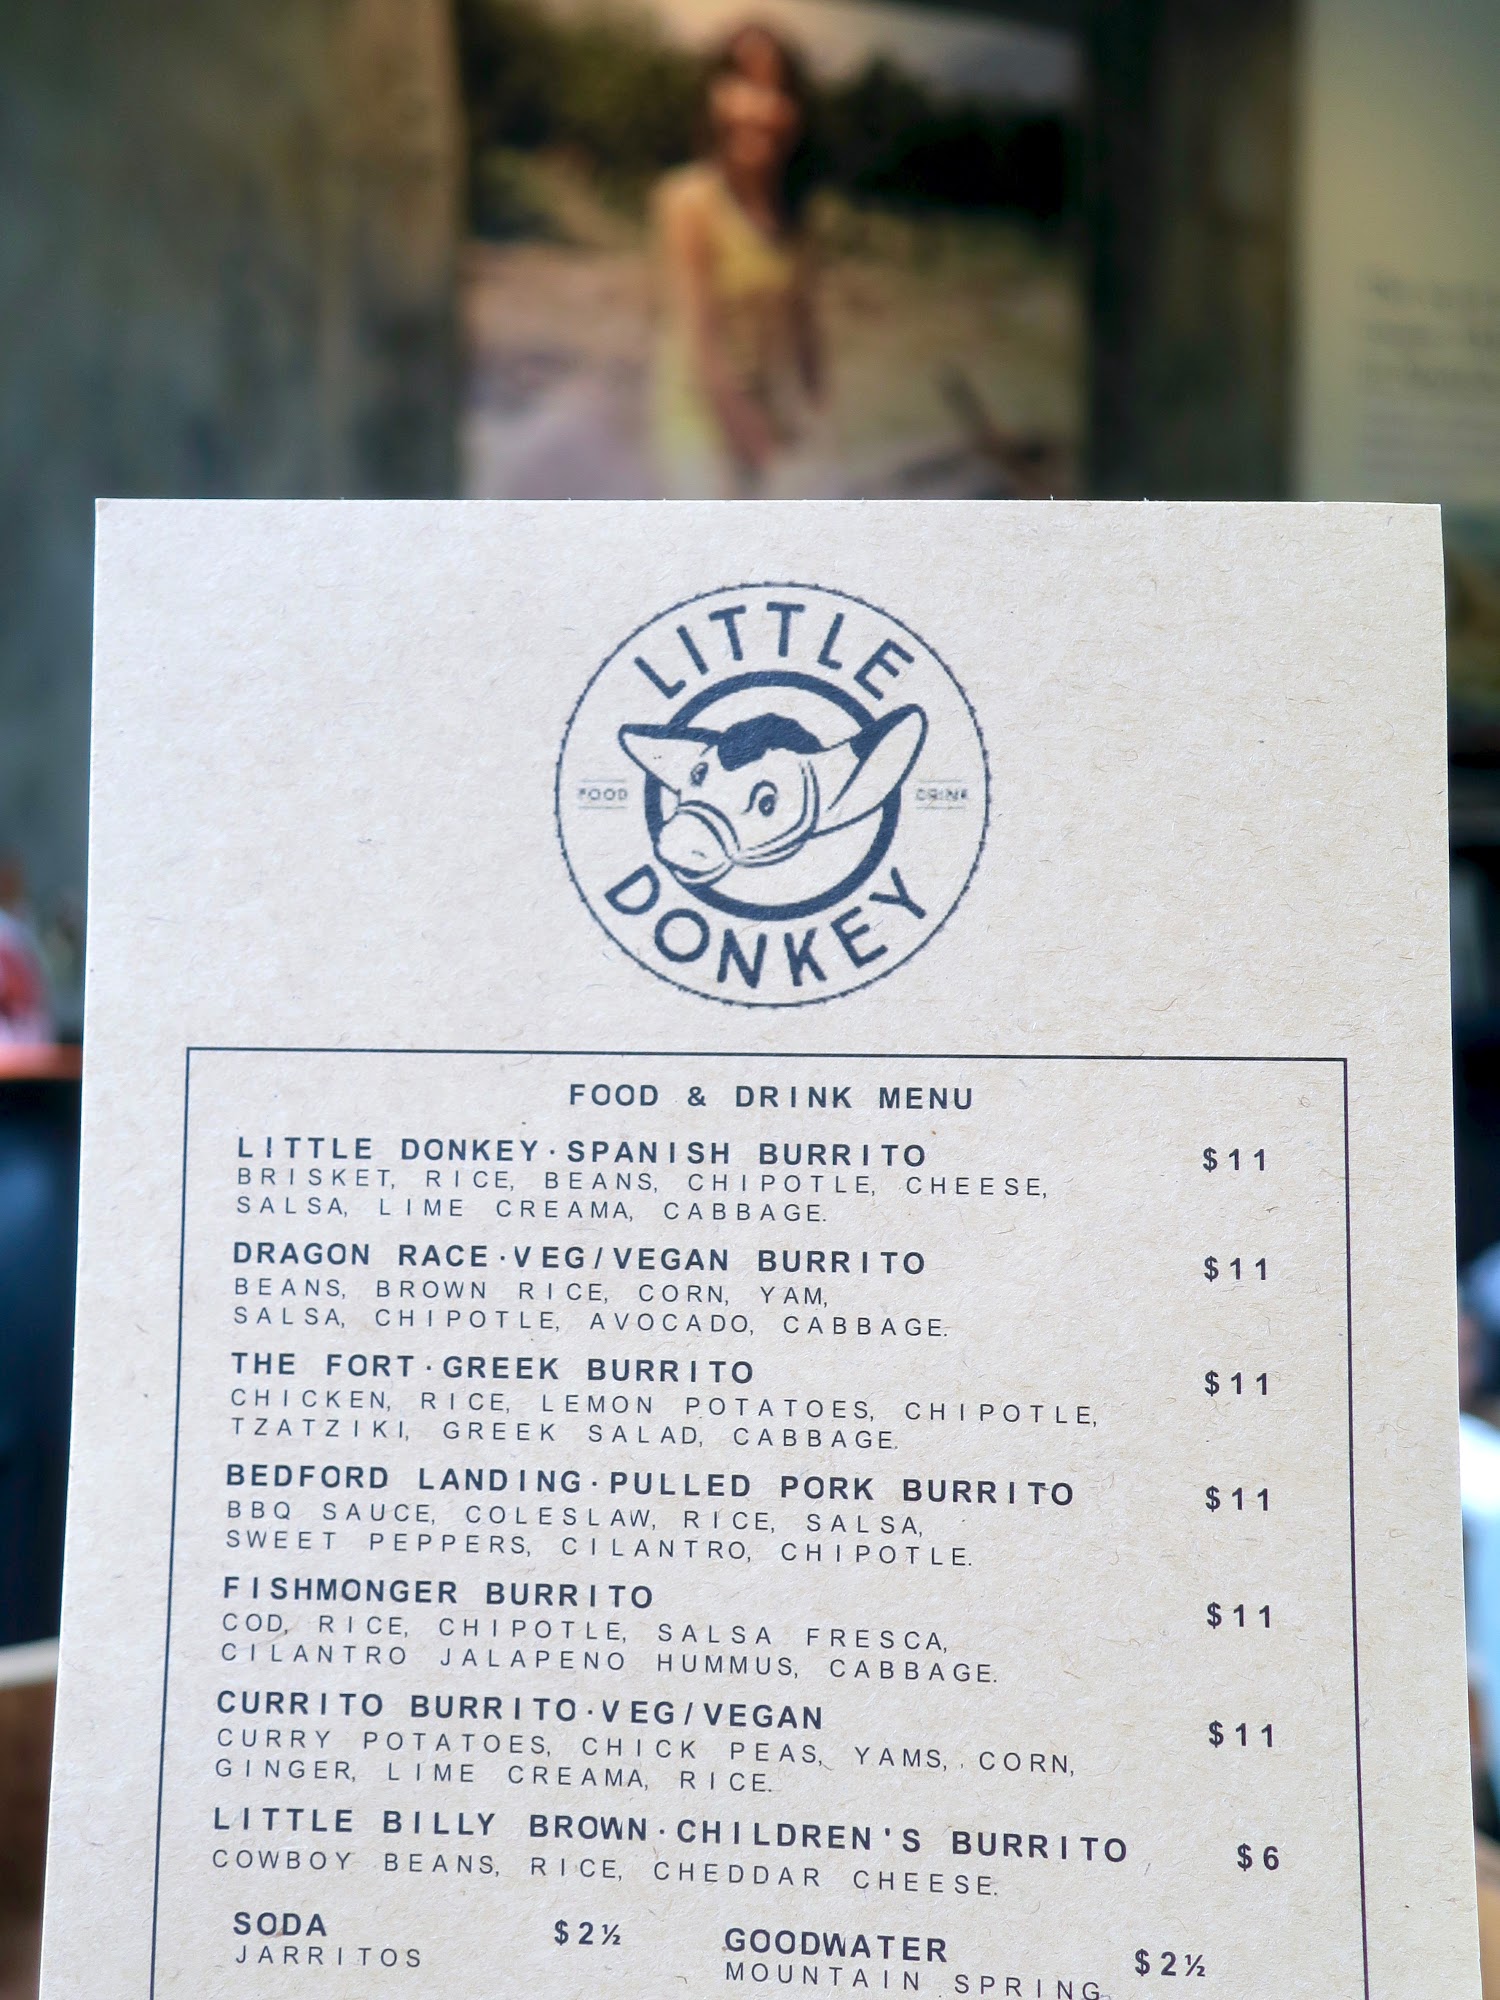 LITTLE
FOOD
DRINK
DONKEY
FOOD & DRINK MENU
LITTLE DONKEY·SPANISH BURRITO $11
BRISKET, RICE, BEANS, CHIPOTLE, CHEESE,
SALSA, LIME CREAMA, CABBAGE.
DRAGON RACE·VEG/VEGAN BURRITO $11
BEANS, BROWN RICE, CORN, YAM,
SALSA, CHIPOTLE, AVOCADO, CABBAGE.
THE FORT·GREEK BURRITO $11
CHICKEN, RICE, LEMON POTATOES, CHIPOTLE,
TZATZIKI, GREEK SALAD, CABBAGE.
BEDFORD LANDING·PULLED PORK BURRITO $11
BBQ SAUCE, COLESLAW, RICE, SALSA,
SWEET PEPPERS, CILANTRO, CHIPOTLE.
FISHMONGER BURRITO $11
COD, RICE, CHIPOTLE, SALSA FRESCA,
CILANTRO JALAPENO HUMMUS, CABBAGE.
CURRITO BURRITO·VEG/VEGAN $11
CURRY POTATOES, CHICK PEAS, YAMS, CORN,
GINGER, LIME CREAMA, RICE.
LITTLE BILLY BROWN·CHILDREN'S BURRITO $6
COWBOY BEANS, RICE, CHEDDAR CHEESE.
SODA $2½ GOODWATER $2½
JARRITOS MOUNTAIN SPRING